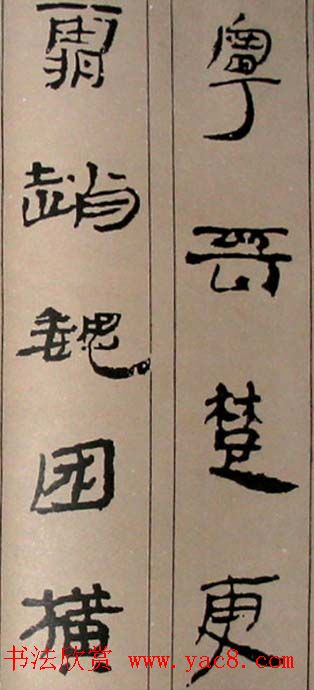 寧晉楚更
霸趙魏困橫
书法欣赏 www.yac8.com